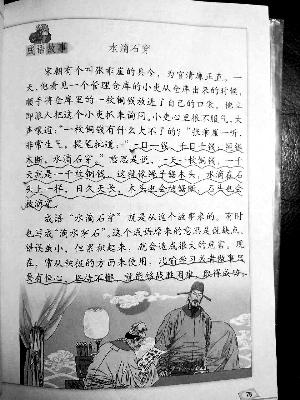 成语故事
水滴石穿
宋朝有个叫张乖崖的县令，为官清廉正直。一
天，他看见一个管理仓库的小吏从仓库出来的时候，
顺手将仓库里的一枚铜钱放进了自己的口袋。他立
即派人把这个小吏抓来审问。小吏心里很不服气，大
声嚷道："一枚铜钱有什么大不了的？"张乖崖一听，
非常生气，提笔批道："一日一钱，千日千钱，绳锯
木断，水滴石穿。"意思是说，一天一枚铜钱，一千
天就是一千枚铜钱。这就像绳子锯木头，水滴在石
头上一样，日久天长，木头也会被锯断，石头也会
被滴穿。
成语"水滴石穿"就是从这个故事来的。有时
也写成"滴水穿石"。这个成语原来的意思是说缺点、
错误虽小，但累积起来，就会造成很大的危害。现
在，常从积极的方面来用，比喻学习或者做事只
要有恒心，坚持不懈，就能够战胜困难，取得成功。